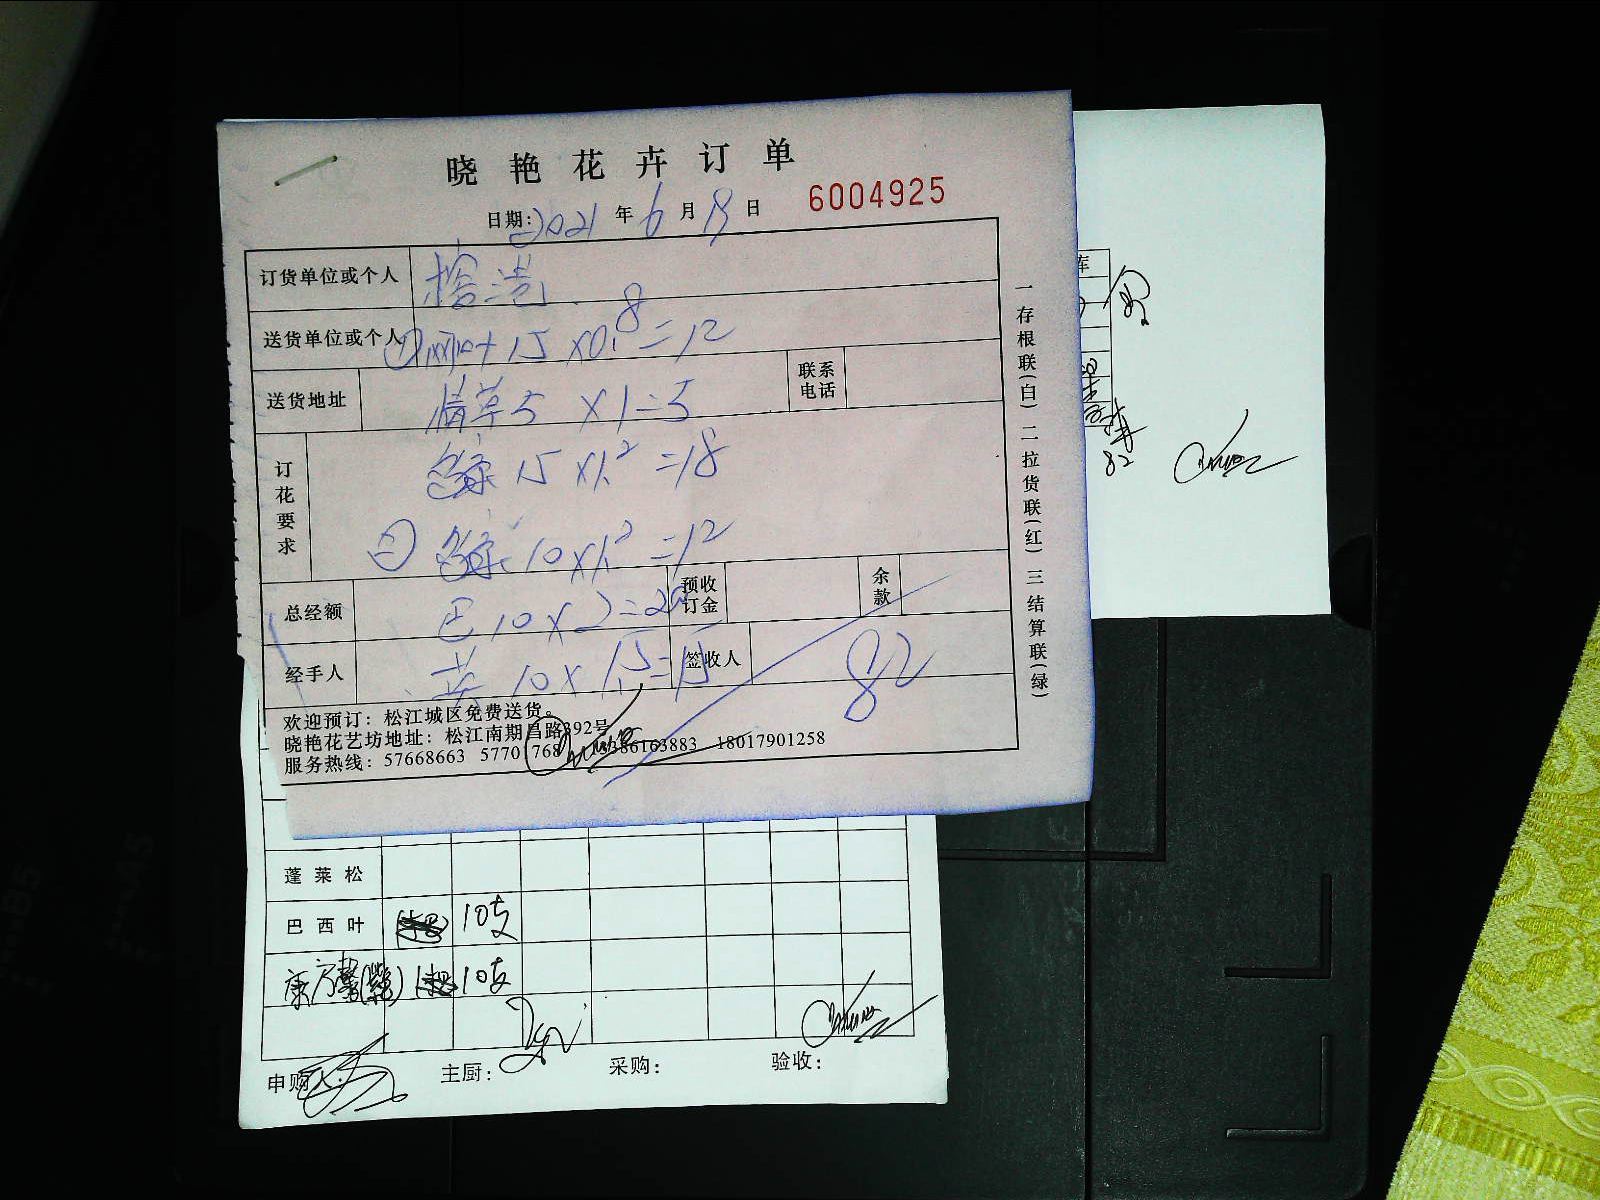 晓艳花卉订单
日期: 2021 年 6 月 19 日 6004925
订货单位或个人
送货单位或个人 ① 15×0.8=12
送货地址 情草5 ×1=5 联系电话
订花要求 15×1.2=18
② 10×1.2=12
总经额 巴10×2=20 预收订金 余款
经手人 共 10×1.5=15 签收人 82
欢迎预订：松江城区免费送货。
晓艳花艺坊地址：松江南期昌路392号
服务热线：57668663 5770 768 386163883 18017901258
一存根联(白) 二拉货联(红) 三结算联(绿)
库
82
蓬莱松
巴西叶 10支
康乃馨(紫) 10支
申购人: 主厨: 采购: 验收: